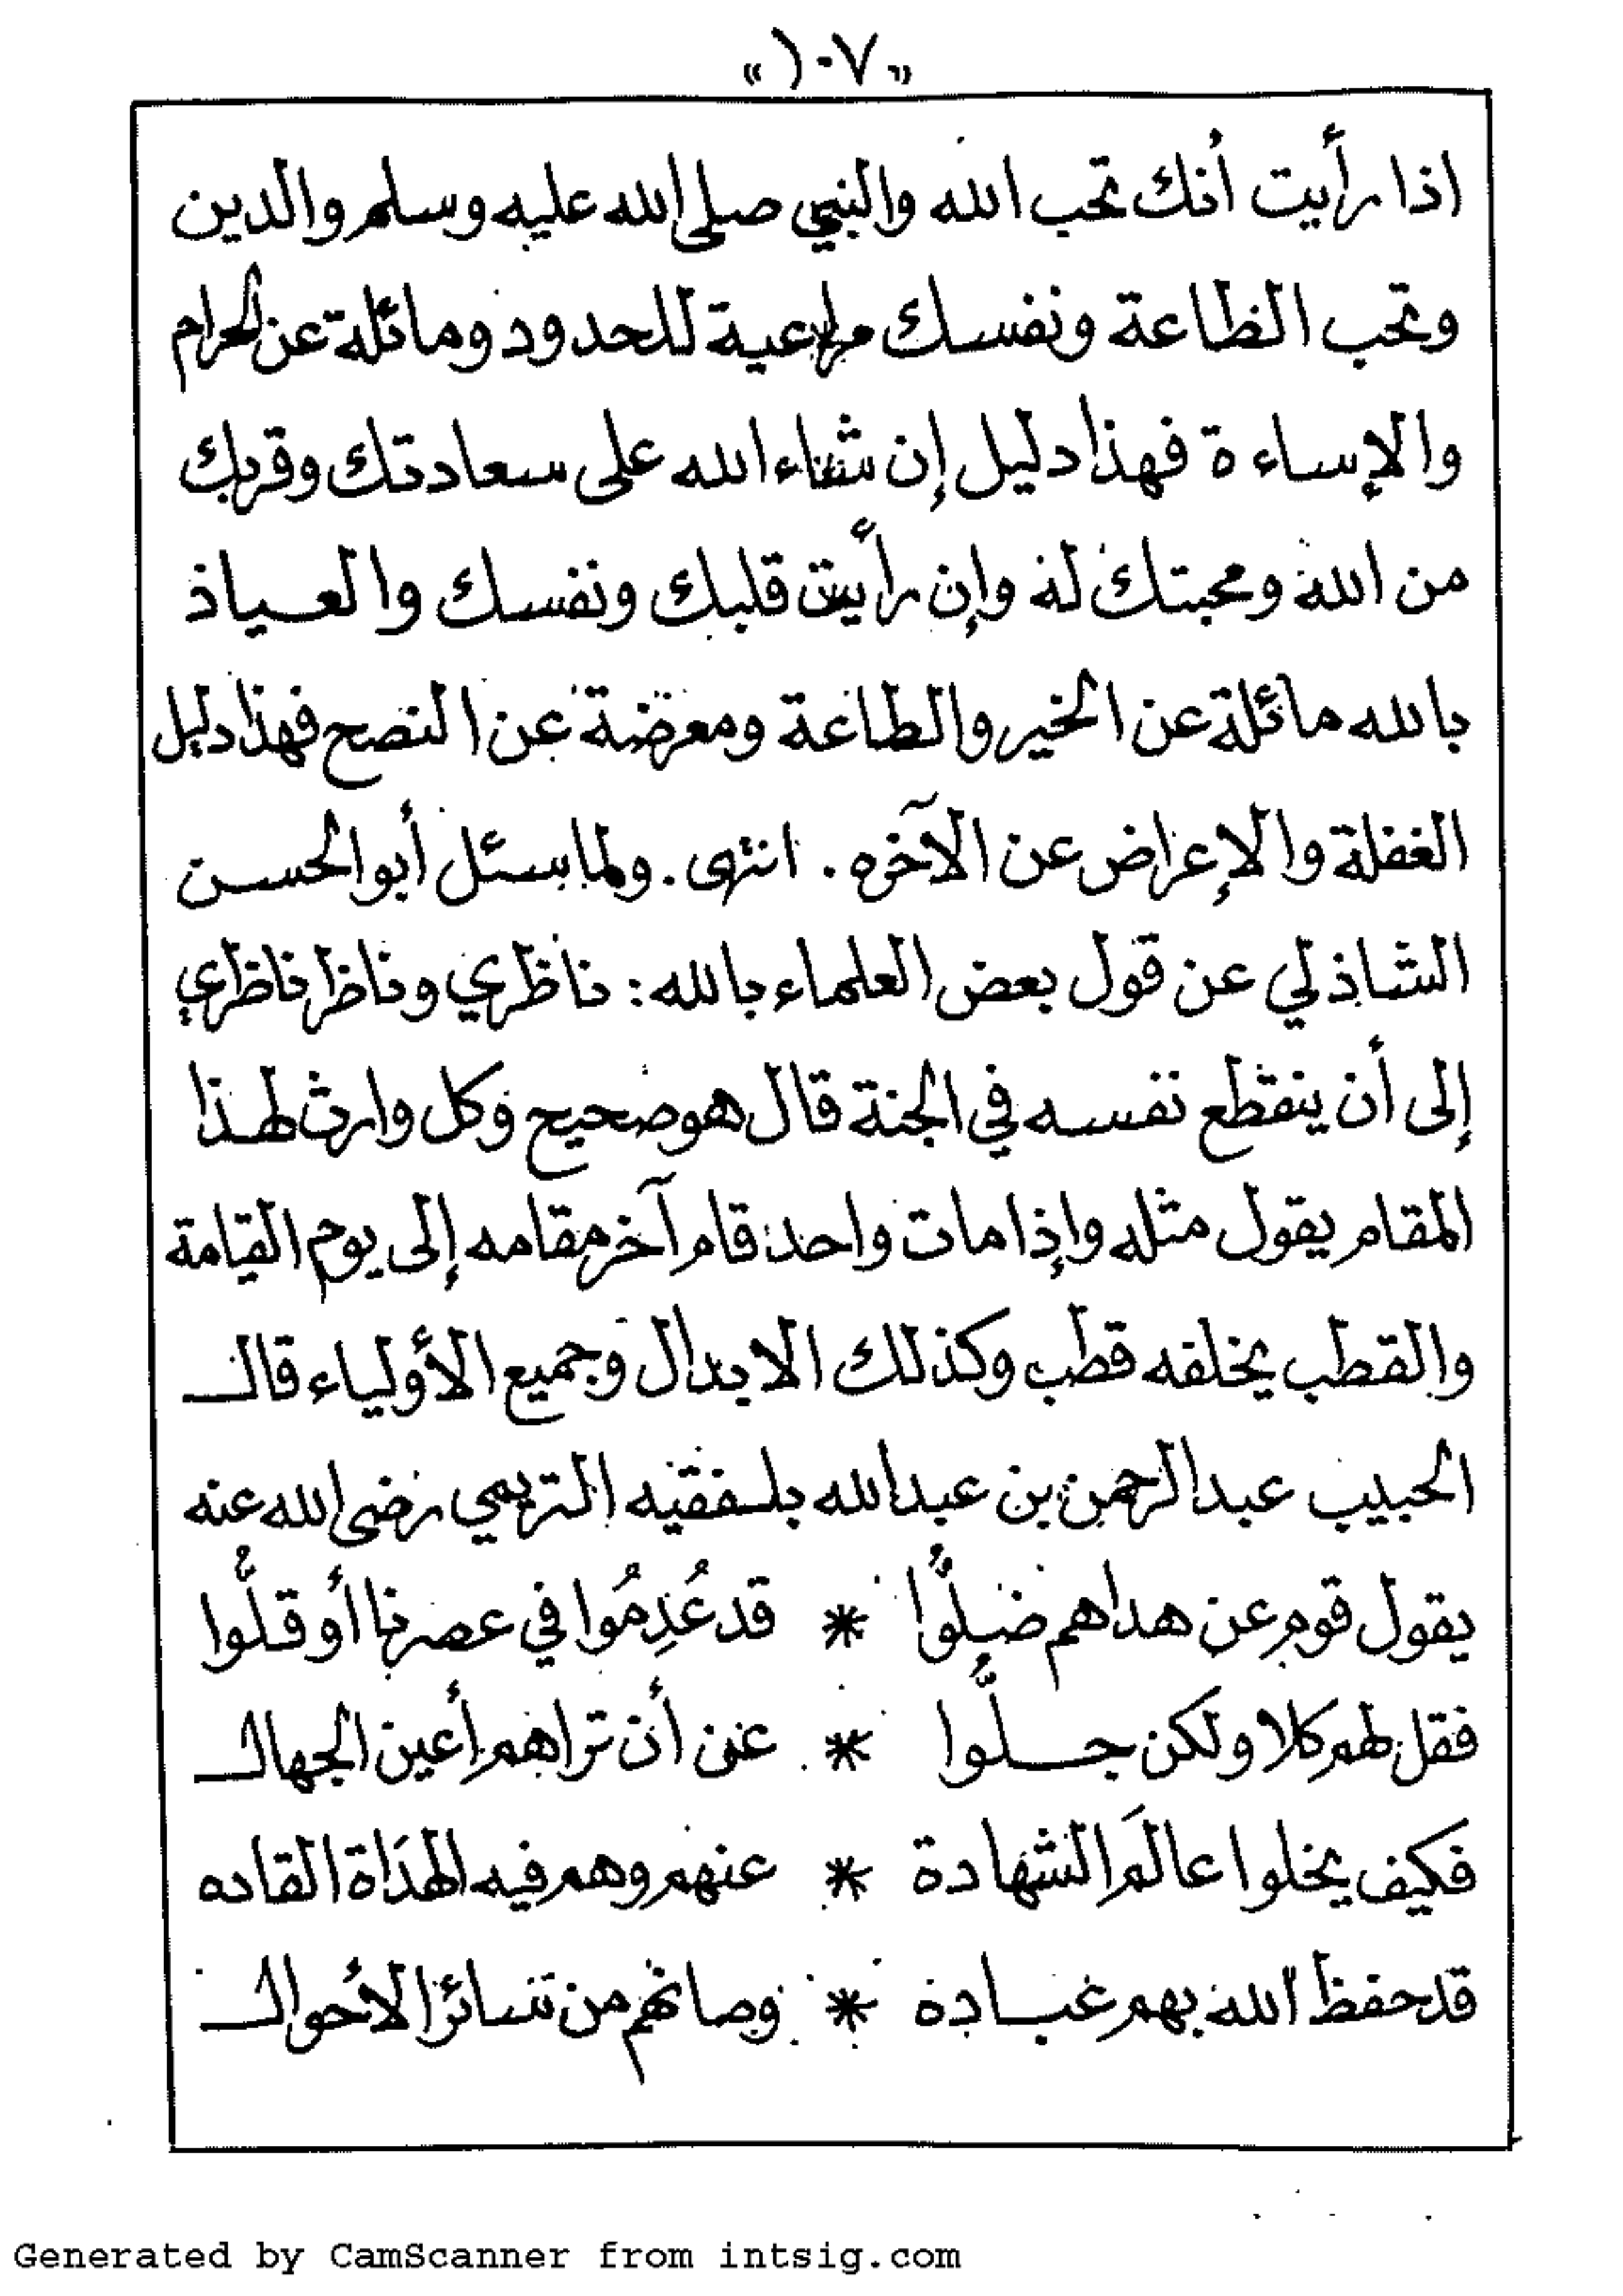 «١٠٧»
اذا رأيت أنك تحب الله والنبي صلى الله عليه وسلم والدين
وتحب الطاعة ونفسك مراعية للحدود ومائلة عن الحرام
والإساءة فهذا دليل إن شاء الله على سعادتك وقربك
من الله ومحبتك له وإن رأيت قلبك ونفسك والعياذ
بالله مائلة عن الخير والطاعة ومعرضة عن النصح فهذا دليل
الغفلة والإعراض عن الآخره . انتهى . ولما سئل أبو الحسن
الشاذلي عن قول بعض العلماء بالله : ناظري وناظر ناظري
إلى أن ينقطع نفسه في الجنة قال هو صحيح وكل وارث لهذا
المقام يقول مثله وإذا مات واحد قام آخر مقامه إلى يوم القيامة
والقطب يخلفه قطب وكذلك الابدال وجميع الأولياء قال
الحبيب عبد الرحمن بن عبد الله بلفقيه التريمي رضى الله عنه
يقول قوم عن هداهم ضلُّوا * قد عُدِمُوا في عصرنا أو قلُّوا
فقل لهم كلا ولكن جلُّوا * عن أن تراهم أعين الجهال
فكيف يخلوا عالَم الشهادة * عنهم وهم فيه الهدَاة القاده
قد حفظ الله بهم عباده * وصانهم من سائر الأحوال
Generated by CamScanner from intsig.com